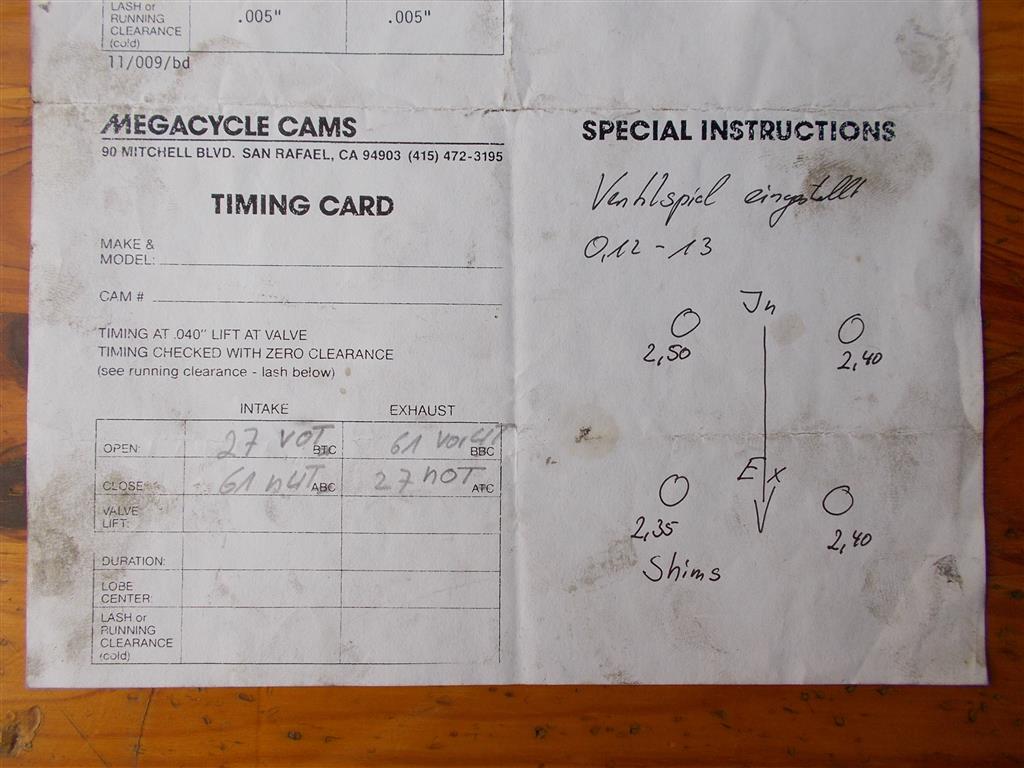 LASH or
RUNNING
CLEARANCE
(cold)
.005" .005"
11/009/bd
MEGACYCLE CAMS
90 MITCHELL BLVD. SAN RAFAEL, CA 94903 (415) 472-3195
TIMING CARD
MAKE &
MODEL:
CAM #
TIMING AT .040" LIFT AT VALVE
TIMING CHECKED WITH ZERO CLEARANCE
(see running clearance - lash below)
INTAKE EXHAUST
OPEN: 27 VOT BTC 61 VorUT BBC
CLOSE: 61 nUT ABC 27 nOT ATC
VALVE
LIFT:
DURATION:
LOBE
CENTER:
LASH or
RUNNING
CLEARANCE
(cold)
SPECIAL INSTRUCTIONS
Ventilspiel eingestellt
0,12 - 13
In
2,50 2,40
Ex
2,35 2,40
Shims